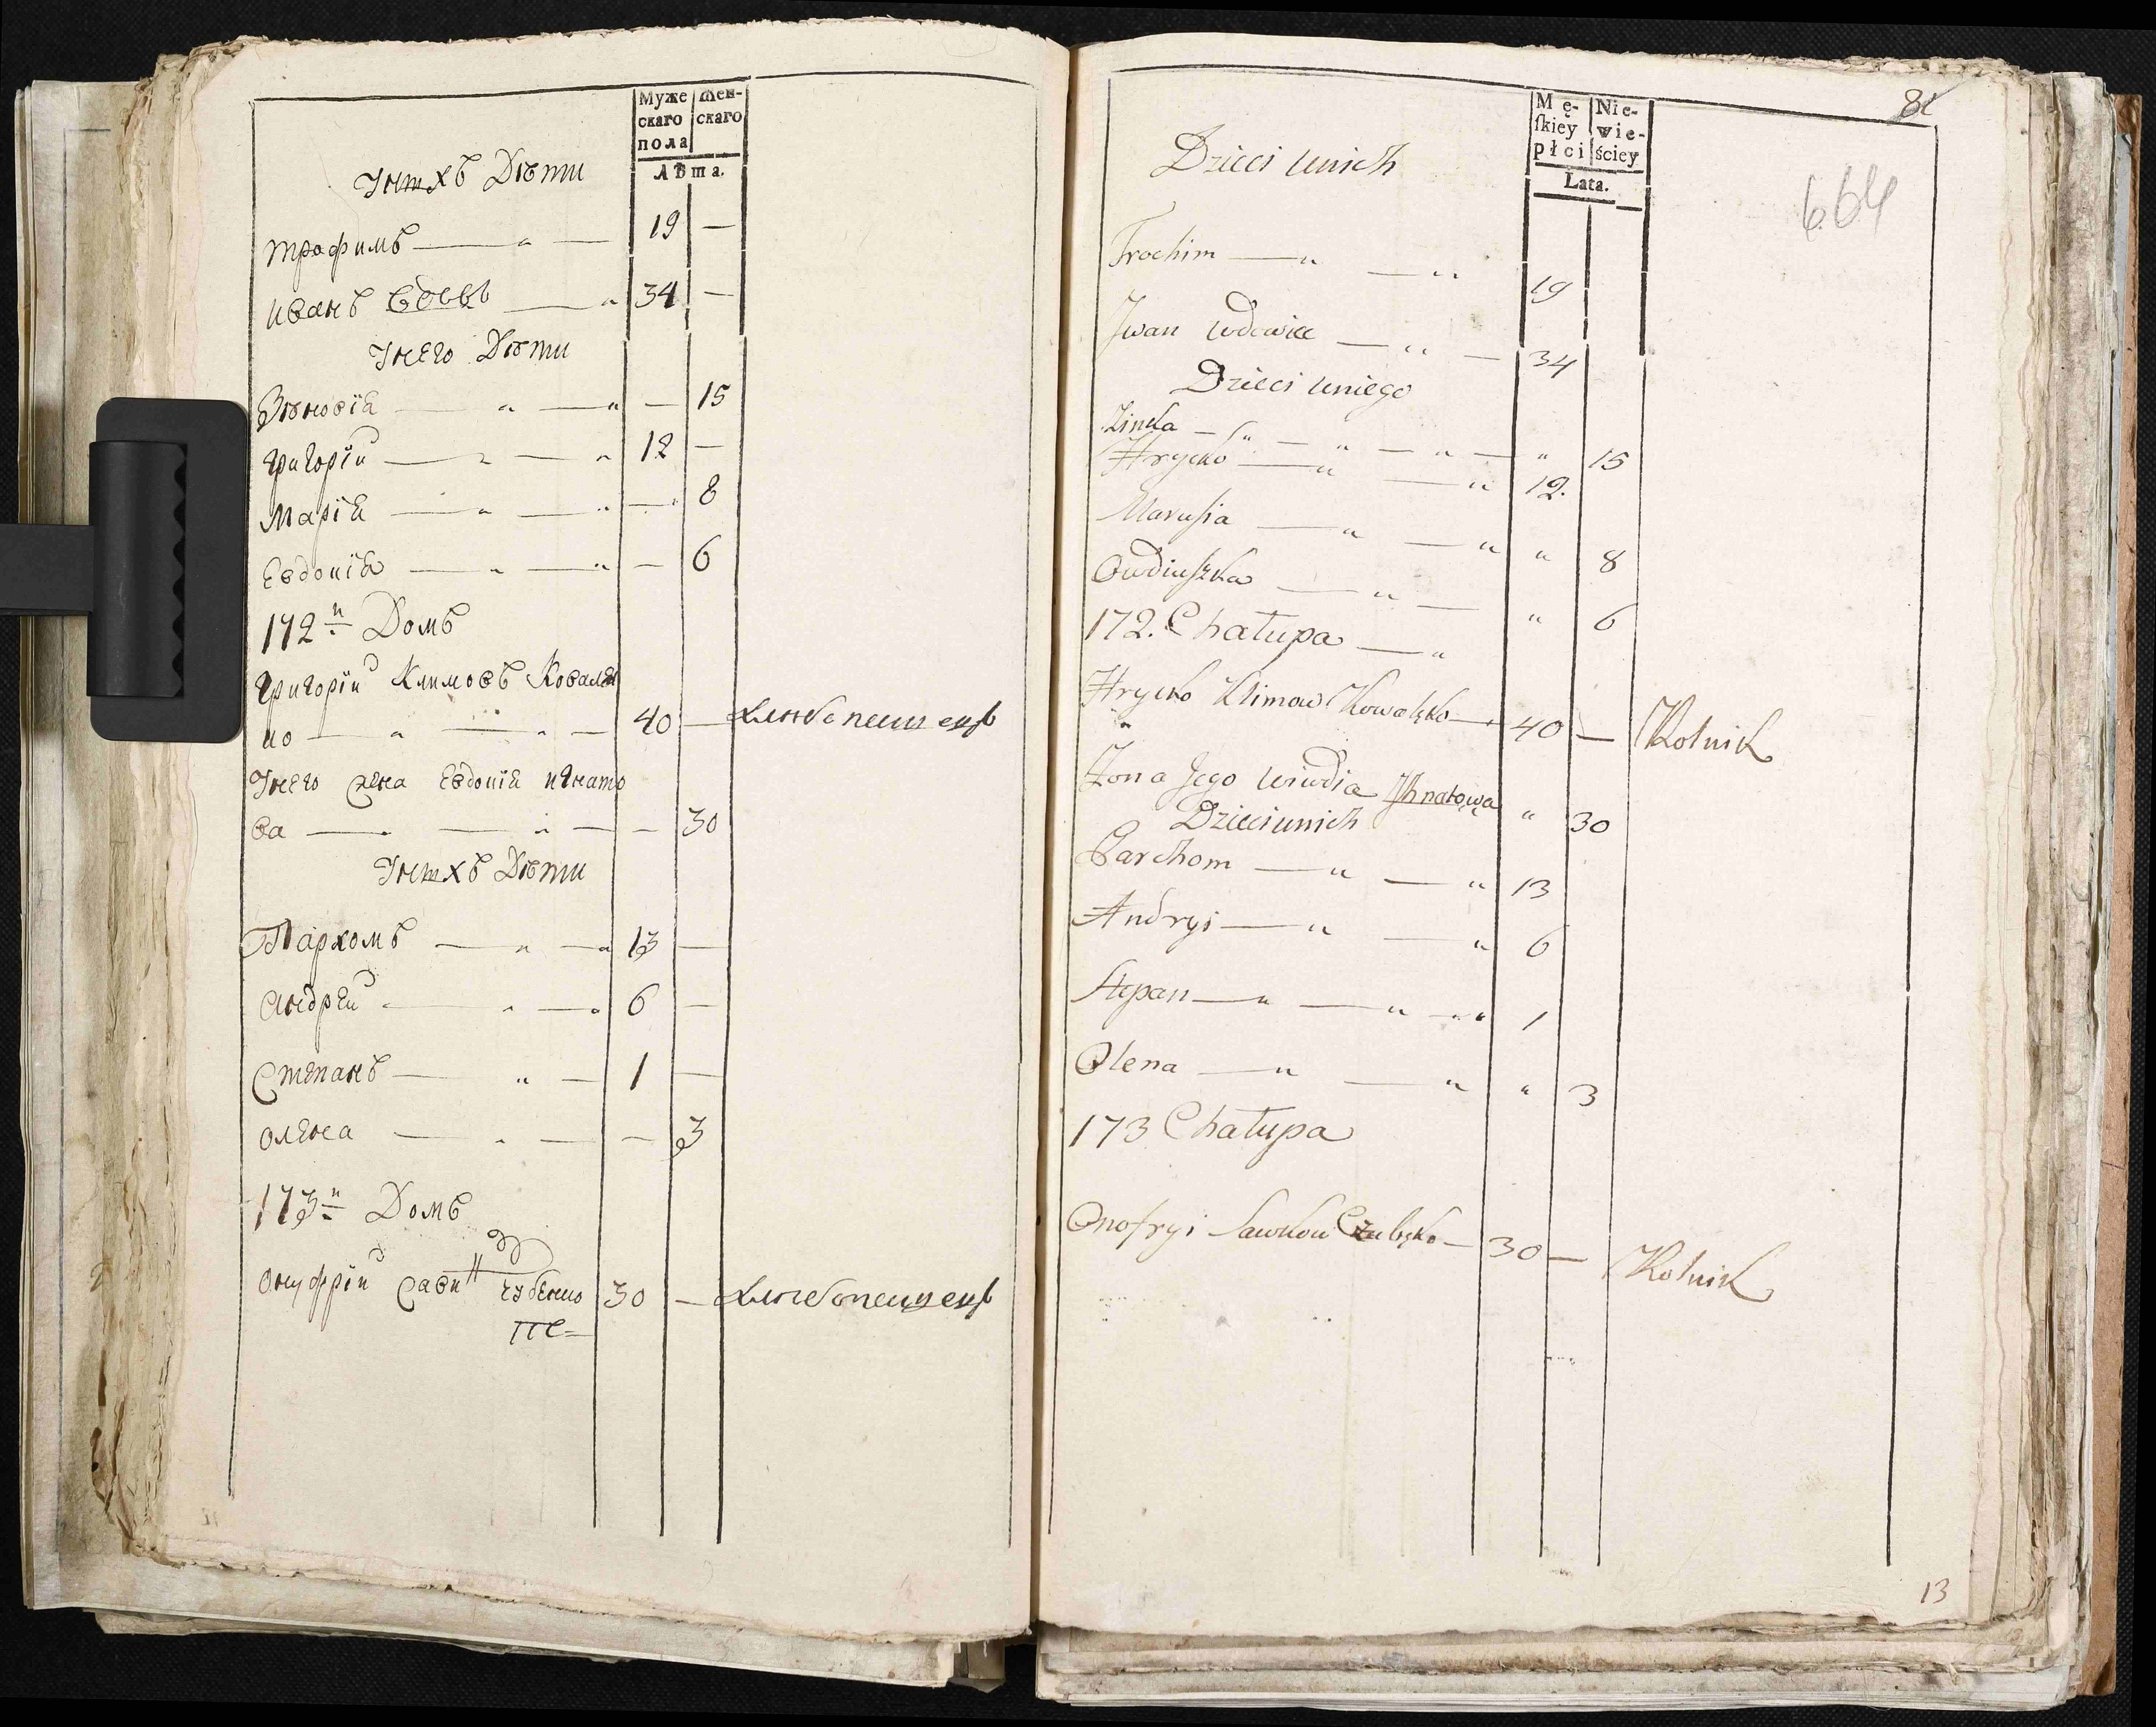 Муже Жен-
скаго скаго
пола
Лѣта.
Унихъ Дѣти
Трофимъ — " — 19 —
Иванъ вдовъ — " 34 —
Унего Дѣти
Зѣновія — " — " — 15
Григорій — " — " 12 —
Марія — " — " — 8
Евдокія — " — " — 6
172й Домъ
Григорій Климовъ Ковален
ко — " — " — 40 — Хлебопашецъ
Унего жена Евдокія Игнато
ва — — " — — 30
Унихъ Дѣти
Пархомъ — " — " 13 —
Андрей — " — " 6 —
Степанъ — " — 1 —
Олена — " — — 3
173й Домъ
Онуфрій Савин Чубенко 30 — Хлебопашецъ
Mę- Nie-
ſkiey wie-
płci ściey
Lata.
82
664
Dzieci unich
Trochim — " — " 19
Jwan wdowiec — " — 34
Dzieci uniego
Zinka — " — " — " — " 15
Hrycko — " — " 12.
Maruſia — " — " " 8
Owdiuſzka — " — " 6
172. Chałupa — "
Hrycko Klimow Kowalęko — 40 — Rolnik
Żona Jego Wiwdia Jhnatowa " 30
Dzieci unich
Parchom — " — " 13
Andryi — " — " 6
Stepan — " — " — " 1
Olena — " — " " 3
173 Chałupa
Onofryi Sawkow Czubęko — 30 — Rolnik
13